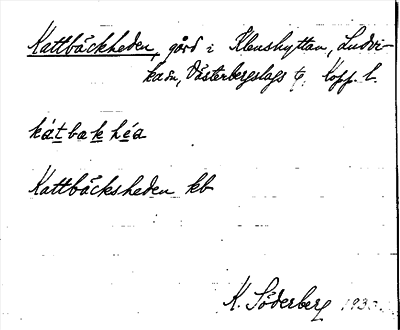 Kattbäckheden, gård i Klenshyttan, Ludvi-
ka sn, Västerbergslags t, Kopp. l.
kátbakhéa
Kattbäcksheden kb
K. Söderberg